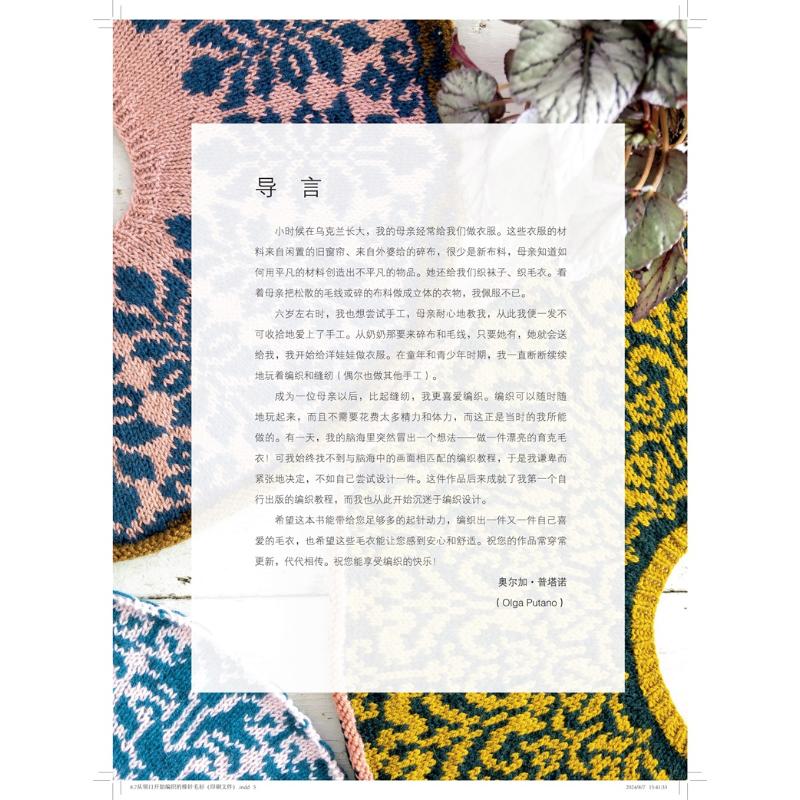 导 言
小时候在乌克兰长大，我的母亲经常给我们做衣服。这些衣服的材
料来自闲置的旧窗帘、来自外婆给的碎布，很少是新布料，母亲知道如
何用平凡的材料创造出不平凡的物品。她还给我们织袜子、织毛衣。看
着母亲把松散的毛线或碎的布料做成立体的衣物，我佩服不已。
六岁左右时，我也想尝试手工，母亲耐心地教我，从此我便一发不
可收拾地爱上了手工。从奶奶那要来碎布和毛线，只要她有，她就会送
给我，我开始给洋娃娃做衣服。在童年和青少年时期，我一直断断续续
地玩着编织和缝纫（偶尔也做其他手工）。
成为一位母亲以后，比起缝纫，我更喜爱编织。编织可以随时随
地玩起来，而且不需要花费太多精力和体力，而这正是当时的我所能
做的。有一天，我的脑海里突然冒出一个想法——做一件漂亮的育克毛
衣！可我始终找不到与脑海中的画面相匹配的编织教程，于是我谦卑而
紧张地决定，不如自己尝试设计一件。这件作品后来成就了我第一个自
行出版的编织教程，而我也从此开始沉迷于编织设计。
希望这本书能带给您足够多的起针动力，编织出一件又一件自己喜
爱的毛衣，也希望这些毛衣能让您感到安心和舒适。祝您的作品常穿常
更新，代代相传。祝您能享受编织的快乐！
奥尔加·普塔诺
（Olga Putano）
8.7从领口开始编织的棒针毛衫（印刷文件）.indd 5
2024/8/7 15:41:33